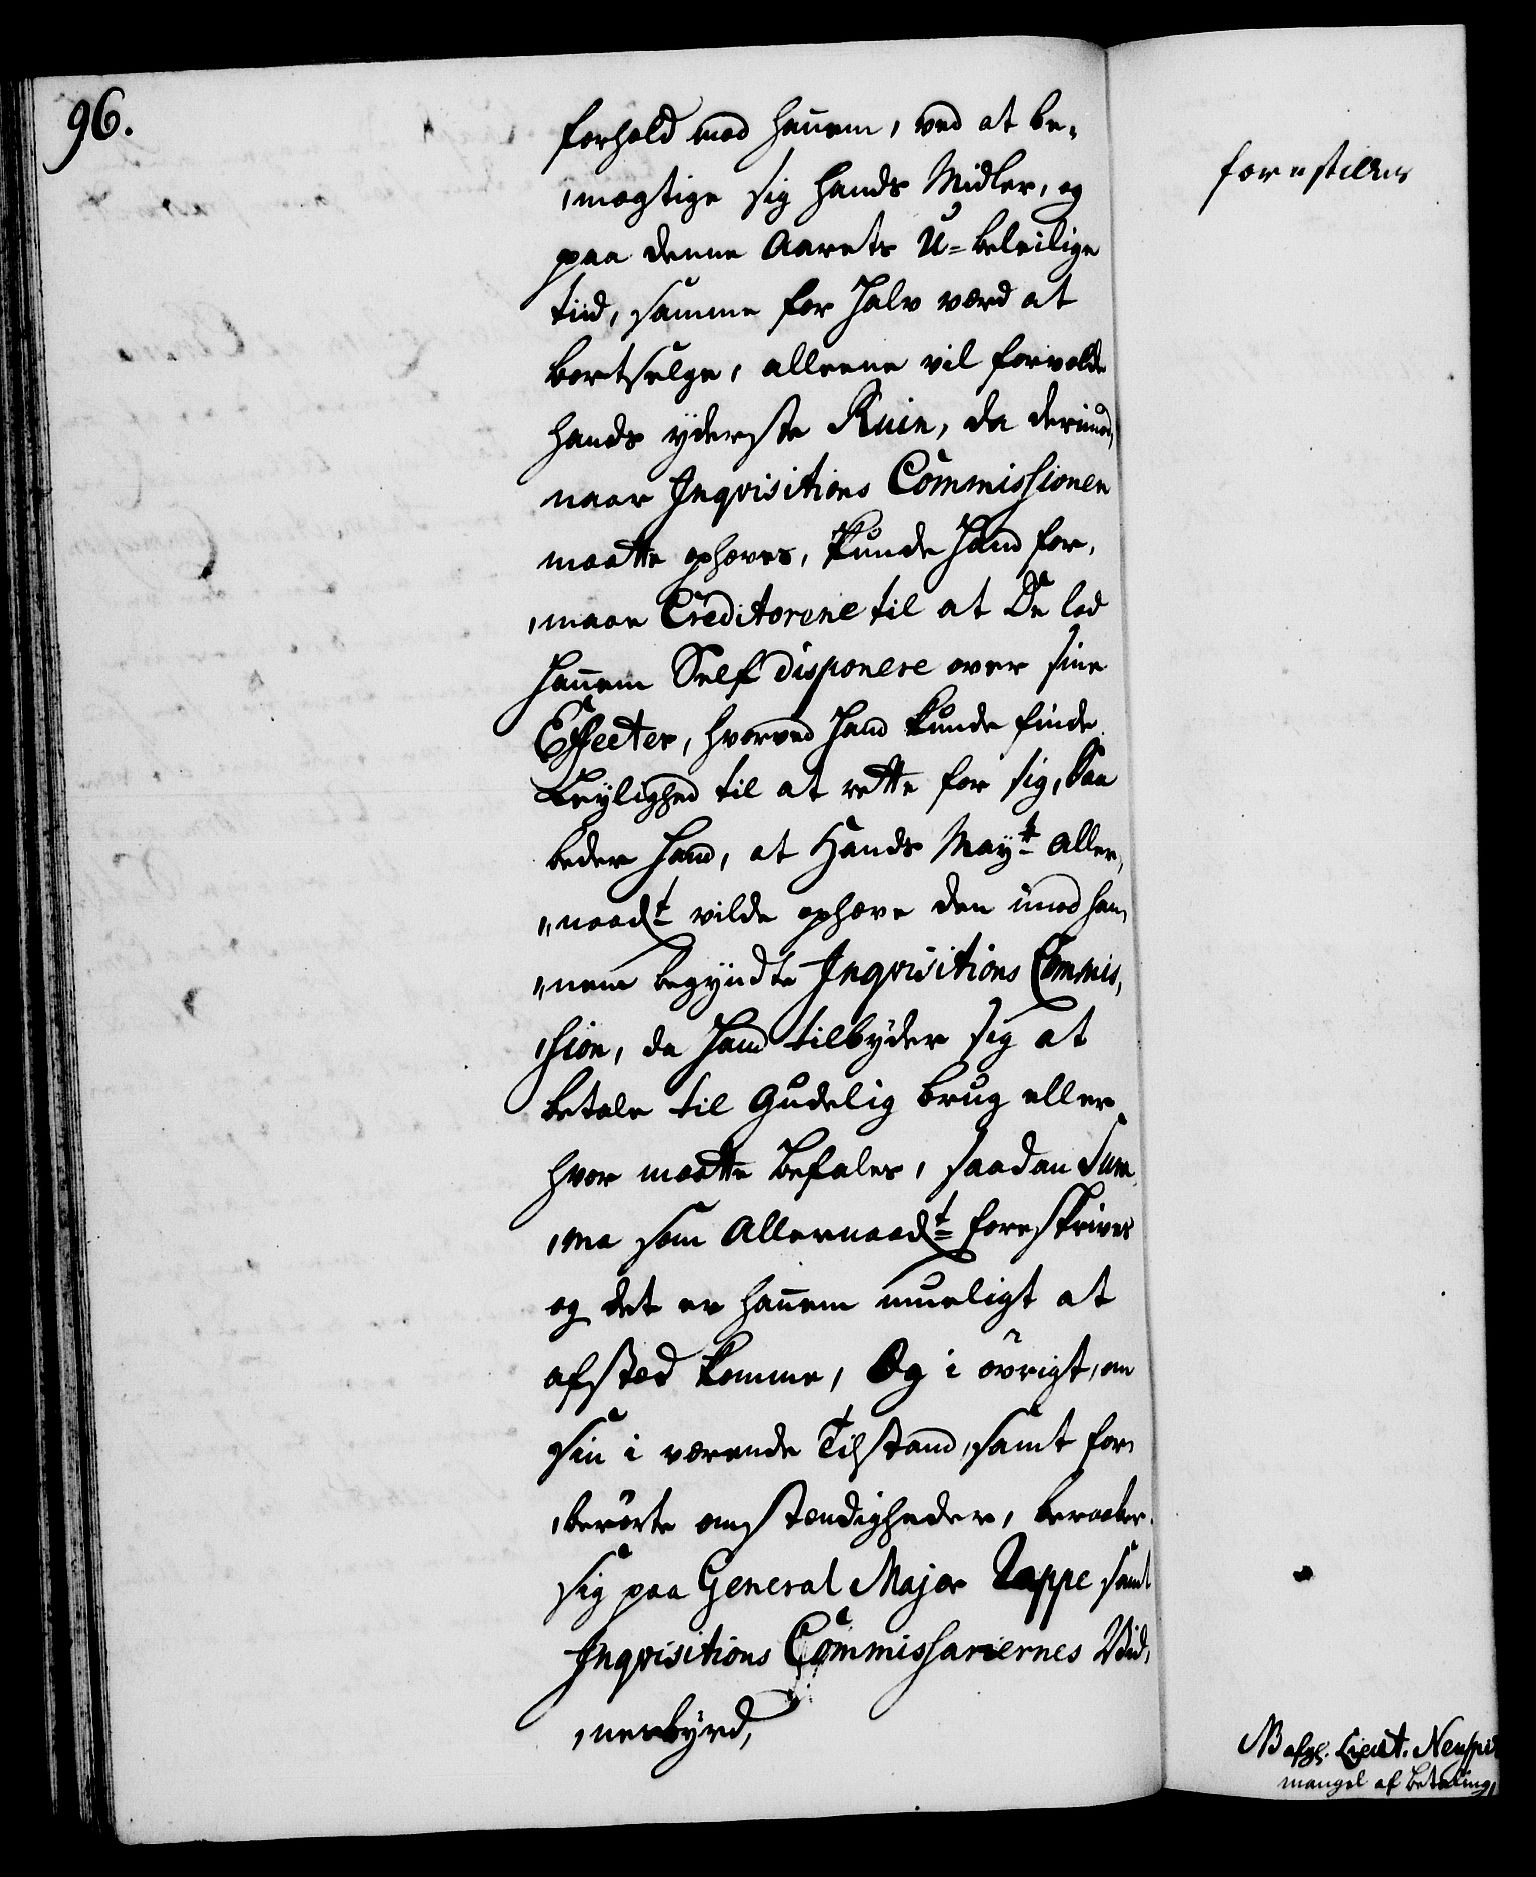 96.
forhold mod hannem, ved at be,
,mægtige sig hands Midler, og
paa denne Aarets U=beleilige
tiid, samme for halv værd at
bortselge, alleene vil forvolde
hands ÿderste Ruin, da derimod,
naar Inqvisitions Commissionen
maatte ophæves, kunde hand for,
,maae Creditorene til at De lod
hannem Self disponere over sine
Effecter, hvorved hand kunde finde
Leÿlighed til at rette for sig, Saa
beder hand, at Hands Maÿt aller,
,,naadt vilde ophæve den imod han,
,,nem begÿndte Inqvisitions Commis,
,sion, da hand tilbÿder sig at
betale til Gudelig brug eller
hvor maatte befales, saadan Sum,
,ma som Allernaadt foreskrives
og det er hannem mueligt at
afsted komme, Og i øvrigt, om
sin i værende Tilstand, samt for,
,berørte omstændigheder, beraaber
sig paa General Major Rappe samt
Inqvisitions Commissariernes Vid,
,nesbÿrd,
forestilles
NB afg. Lieut.
mangel af betaling,